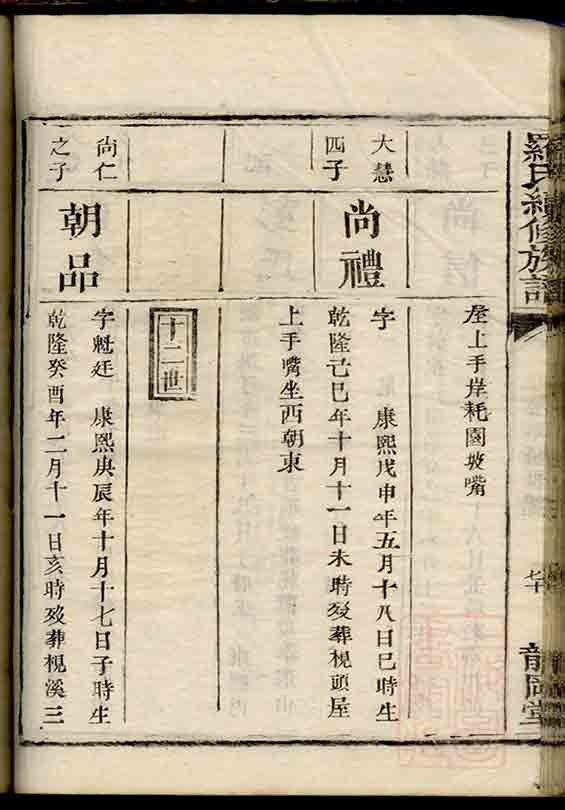 羅氏續修族譜
龍岡堂
屋上手岸耗園坡嘴
大慧
四子
尚禮
字 康熙戊申年五月十八日巳時生
乾隆己巳年十月十一日未時歿葬梘頭屋
上手嘴坐西朝東
十二世
尚仁
之子
朝品
字魁廷 康熙庚辰年十月十七日子時生
乾隆癸酉年二月十一日亥時歿葬梘溪三